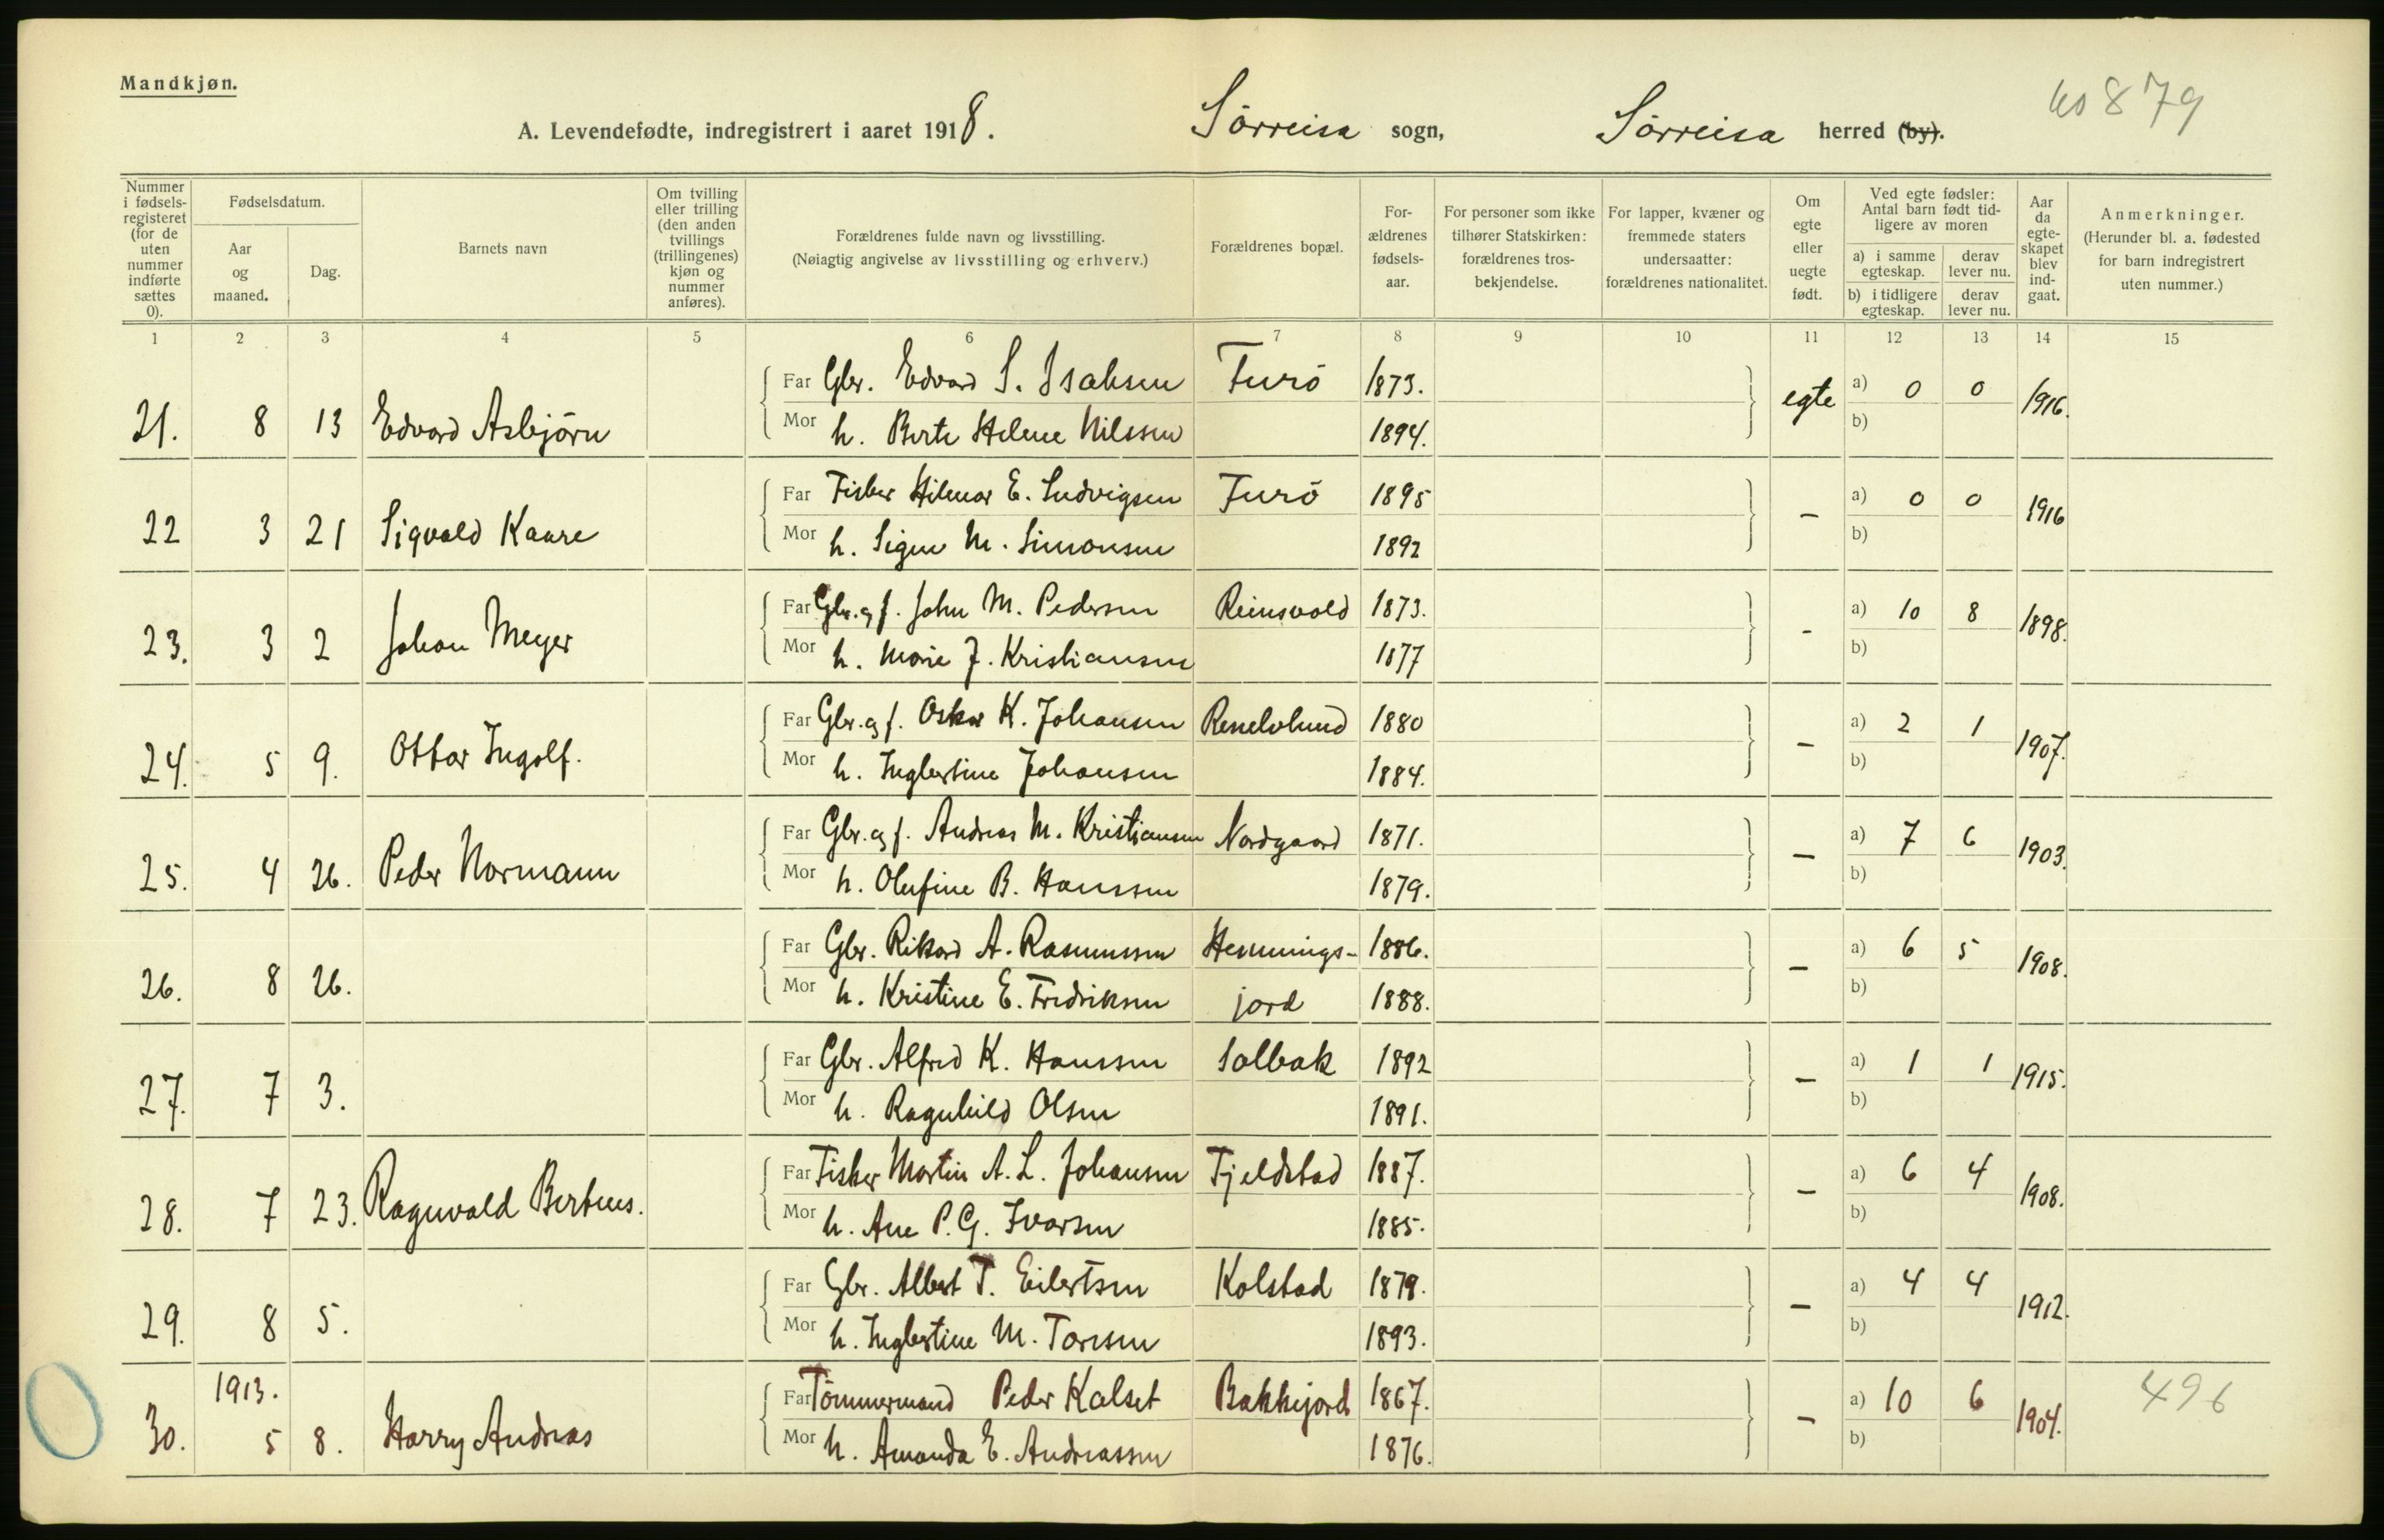 Mandkjøn.
A. Levendefødte, indregistrert i aaret 1918. Sørreisa sogn, Sørreisa herred (by).
879
Nummer i fødselsregisteret (for de uten nummer indførte sættes 0).
Fødselsdatum.
Aar og maaned.
Dag.
Barnets navn
Om tvilling eller trilling (den anden tvillings (trillingenes) kjøn og nummer anføres).
Forældrenes fulde navn og livsstilling.
(Nøiagtig angivelse av livsstilling og erhverv.)
Forældrenes bopæl.
Forældrenes fødselsaar.
For personer som ikke tilhører Statskirken: forældrenes trosbekjendelse.
For lapper, kvæner og fremmede staters undersaatter: forældrenes nationalitet.
Om egte eller uegte født.
Ved egte fødsler: Antal barn født tidligere av moren
a) i samme egteskap. derav lever nu.
b) i tidligere egteskap. derav lever nu.
Aar da egteskapet blev indgaat.
Anmerkninger.
(Herunder bl. a. fødested for barn indregistrert uten nummer.)
1 2 3 4 5 6 7 8 9 10 11 12 13 14 15
Far Gbr. Edvard S. Isaksen Furö 1873.
21. 8 13 Edvard Asbjörn egte a) 0 0 1916.
Mor h. Berte Helene Nilssen 1894. b)
Far Fisker Hilmar E. Ludvigsen Furö 1895
22 3 21 Sigvald Kaare – a) 0 0 1916
Mor h. Signe M. Simonsen 1892 b)
Far Gbr. og f. John M. Pedersen Reinsvold 1873.
23. 3 2 Johan Meyer - a) 10 8 1898.
Mor h. Marie J. Kristiansen 1877 b)
Far Gbr. og f. Oskar K. Johansen 1880
24. 5 9. Ottar Ingolf. – a) 2 1 1907.
Mor h. Ingbertine Johansen 1884. b)
Far Gbr. og f. Andreas M. Kristiansen Nordgaard 1871.
25. 4 26. Peder Normann – a) 7 6 1903.
Mor h. Olufine B. Hanssen 1879. b)
Far Gbr. Rikard A. Rasmussen Hemmings- 1886.
26. 8 26. – a) 6 5 1908.
Mor h. Kristine E. Fredriksen jord 1888. b)
Far Gbr. Alfred K. Hanssen Solbak 1892
27. 7 3. – a) 1 1 1915.
Mor h. Ragnhild Olsen 1891. b)
Far Fisker Martin A. L. Johansen Fjeldstad 1887.
28. 7 23. Ragnvald Berteus. – a) 6 4 1908.
Mor h. Ane P. G. Ivarsen 1885. b)
Far Gbr. Albert T. Eilertsen Kolstad 1879.
29. 8 5. – a) 4 4 1912.
Mor h. Ingbertine M. Toresen 1893. b)
1913.
Far Tömmermand Peder Kalset Bakkejord 1867.
30. 5 8. Harry Andreas – a) 10 6 1904. 496
Mor h. Amanda E. Andreassen 1876. b)